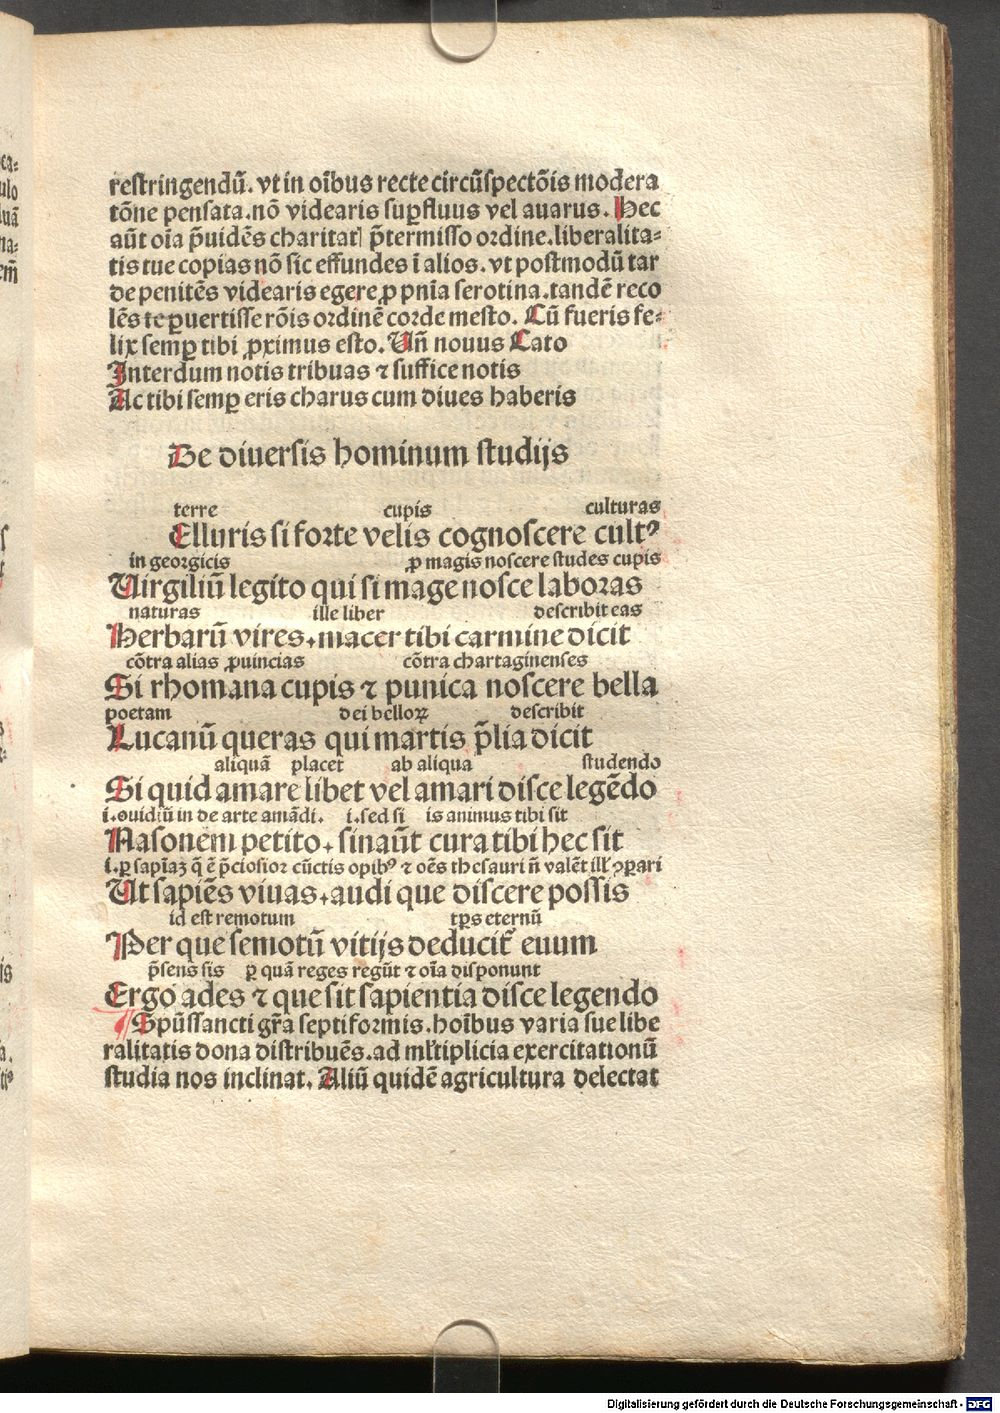 restringendū. vt in oībus recte circūspectōis modera
tōne pensata. nō videaris suꝑfluus vel auarus. Hec
aūt oīa p̄uidēs charitatꝭ p̄termisso ordine. liberalita-
tis tue copias nō sic effundes ī alios. vt postmodū tar
de penitēs videaris egere ꝓ pnīa serotina. tandē reco
lēs te ꝑuertisse rōis ordinē corde mesto. Cū fueris fe-
lix semꝑ tibi ꝓximus esto. Un̄ nouus Cato
Interdum notis tribuas ⁊ suffice notis
Ac tibi semꝑ eris charus cum diues haberis
De diuersis hominum studijs
terre cupis culturas
Elluris si forte velis cognoscere cultꝰ
in georgicis ꝓ magis noscere studes cupis
Uirgiliū legito qui si mage nosce laboras
naturas ille liber describit eas
Herbarū vires. macer tibi carmine dicit
cōtra alias ꝓuincias cōtra chartaginenses
Si rhomana cupis ⁊ punica noscere bella
poetam dei belloꝝ describit
Lucanū queras qui martis p̄lia dicit
aliquā placet ab aliqua studendo
Si quid amare libet vel amari disce legēdo
i. ouidiū in de arte amādi. i. sed si is animus tibi sit
Nasonem petito. sinaūt cura tibi hec sit
i. ꝑ sapīaꝫ q̄ ē p̄ciosior cūctis opibꝰ ⁊ oēs thesauri n̄ valēt illꝭ ꝯꝑari
Ut sapiēs viuas. audi que discere possis
id est remotum tꝑs eternū
Per que semotū vitijs deducit᷑ euum
p̄sens sis ꝑ quā reges regūt ⁊ oīa disponunt
Ergo ades ⁊ que sit sapientia disce legendo
¶ Spūssancti gr̄a septiformis. hoībus varia sue libe
ralitatis dona distribuēs. ad ml̄tiplicia exercitationū
studia nos inclinat. Aliū quidē agricultura delectat
Digitalisierung gefördert durch die Deutsche Forschungsgemeinschaft - DFG